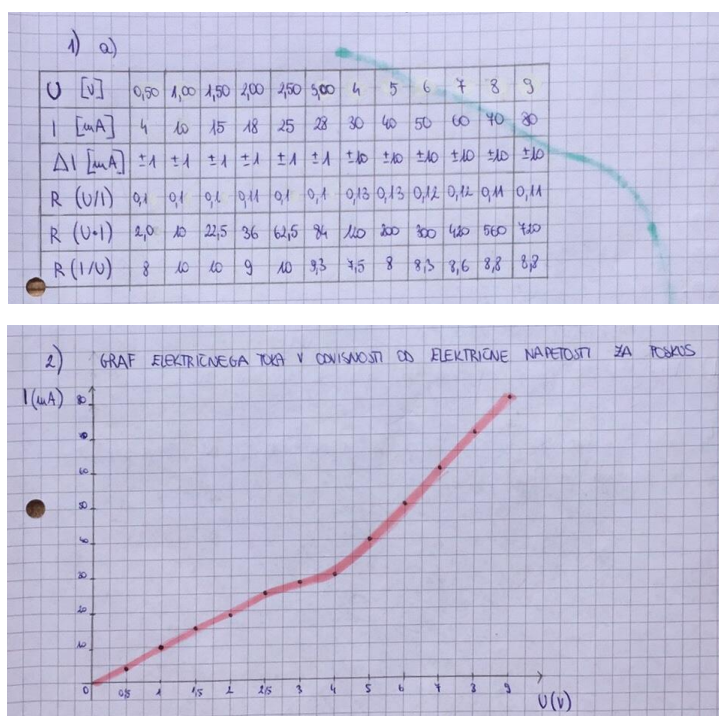 1) a)
U [V] 0,50 1,00 1,50 2,00 2,50 3,00 4 5 6 7 8 9
I [mA] 4 10 15 18 25 28 30 40 50 60 70 80
ΔI [mA] ±1 ±1 ±1 ±1 ±1 ±1 ±10 ±10 ±10 ±10 ±10 ±10
R (U/I) 0,1 0,1 0,1 0,11 0,1 0,1 0,13 0,13 0,12 0,12 0,11 0,11
R (U·I) 2,0 10 22,5 36 62,5 84 120 200 300 420 560 720
R (I/U) 8 10 10 9 10 9,3 7,5 8 8,3 8,6 8,8 8,8
2) GRAF ELEKTRIČNEGA TOKA V ODVISNOSTI OD ELEKTRIČNE NAPETOSTI ZA POSKUS
I (mA)
80
60
50
40
30
20
10
0 0,5 1 1,5 2 2,5 3 4 5 6 7 8 9
U (V)